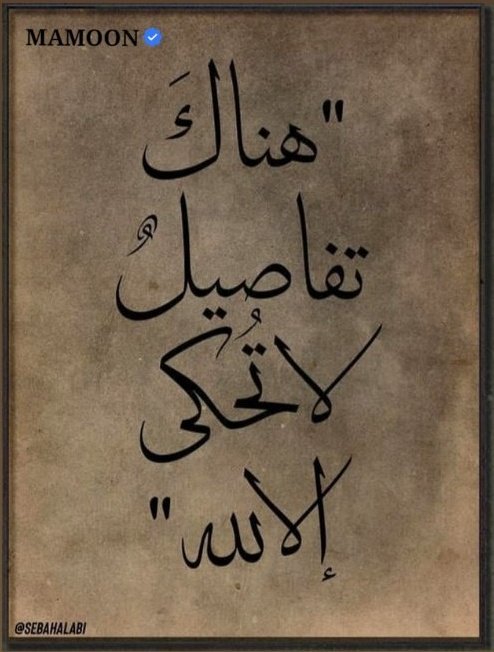 MAMOON
"هناكَ
تفاصيلٌ
لا تُحكى
إلا لله"
@SEBAHALABI